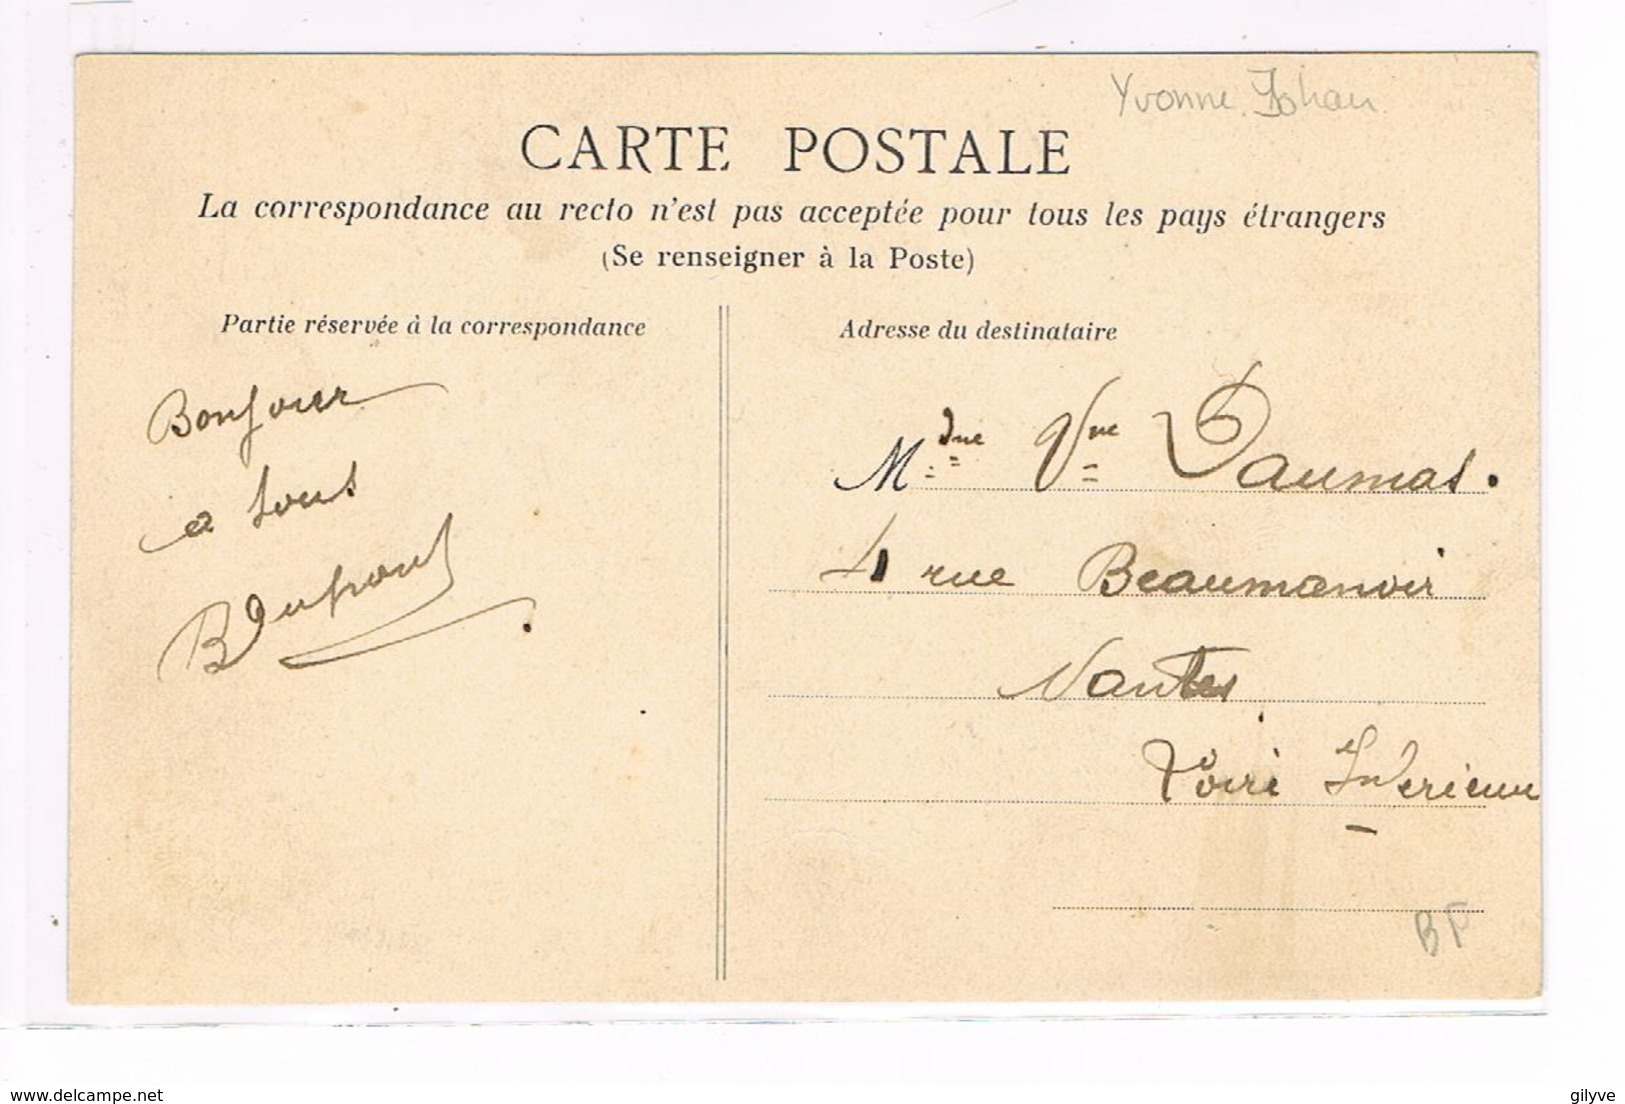 Yvonne Johan
CARTE POSTALE
La correspondance au recto n'est pas acceptée pour tous les pays étrangers
(Se renseigner à la Poste)
Partie réservée à la correspondance
Bonjour
a tous
B Dupont
Adresse du destinataire
Mdme Vve Daumas.
4 rue Beaumanoir
Nantes
Loire Inferieure
BF
www.delcampe.net
gilyve